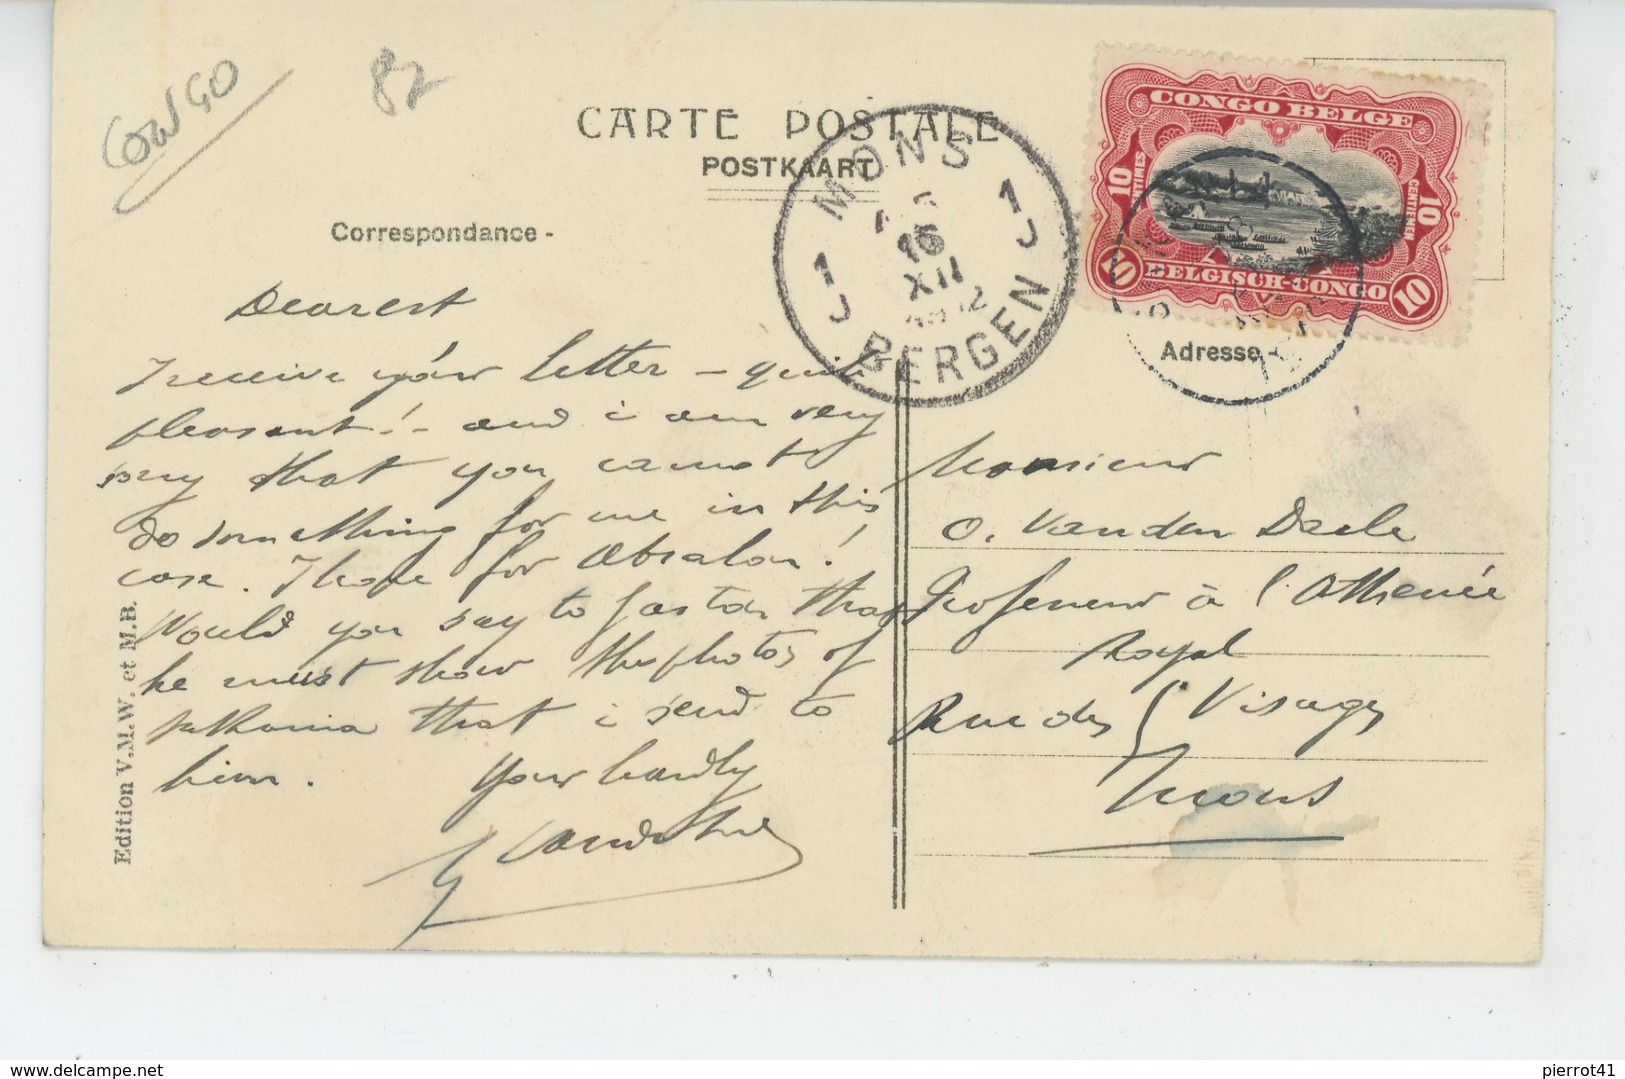 CONGO
82
CARTE POSTALE
POSTKAART
Correspondance -
MONS
1 1
15
XII
BERGEN
CONGO BELGE
10 CENTIMES
10 CENTIEMEN
10 BELGISCH-CONGO 10
Adresse -
Dearest
I receive your letter - quite
pleasant! - and i am very
sory that you cannot
do something for me in this
case. I hope for Absalon!
Would you say to Gaston that
he must show the photos of
Sakania that i send to
him.
Your hardly
Monsieur
O. Vanden Daele
Professeur à l'Athénée
Royal
Rue des 5 Visages
Mons
Edition V.M.W. et M.B.
pierrot41